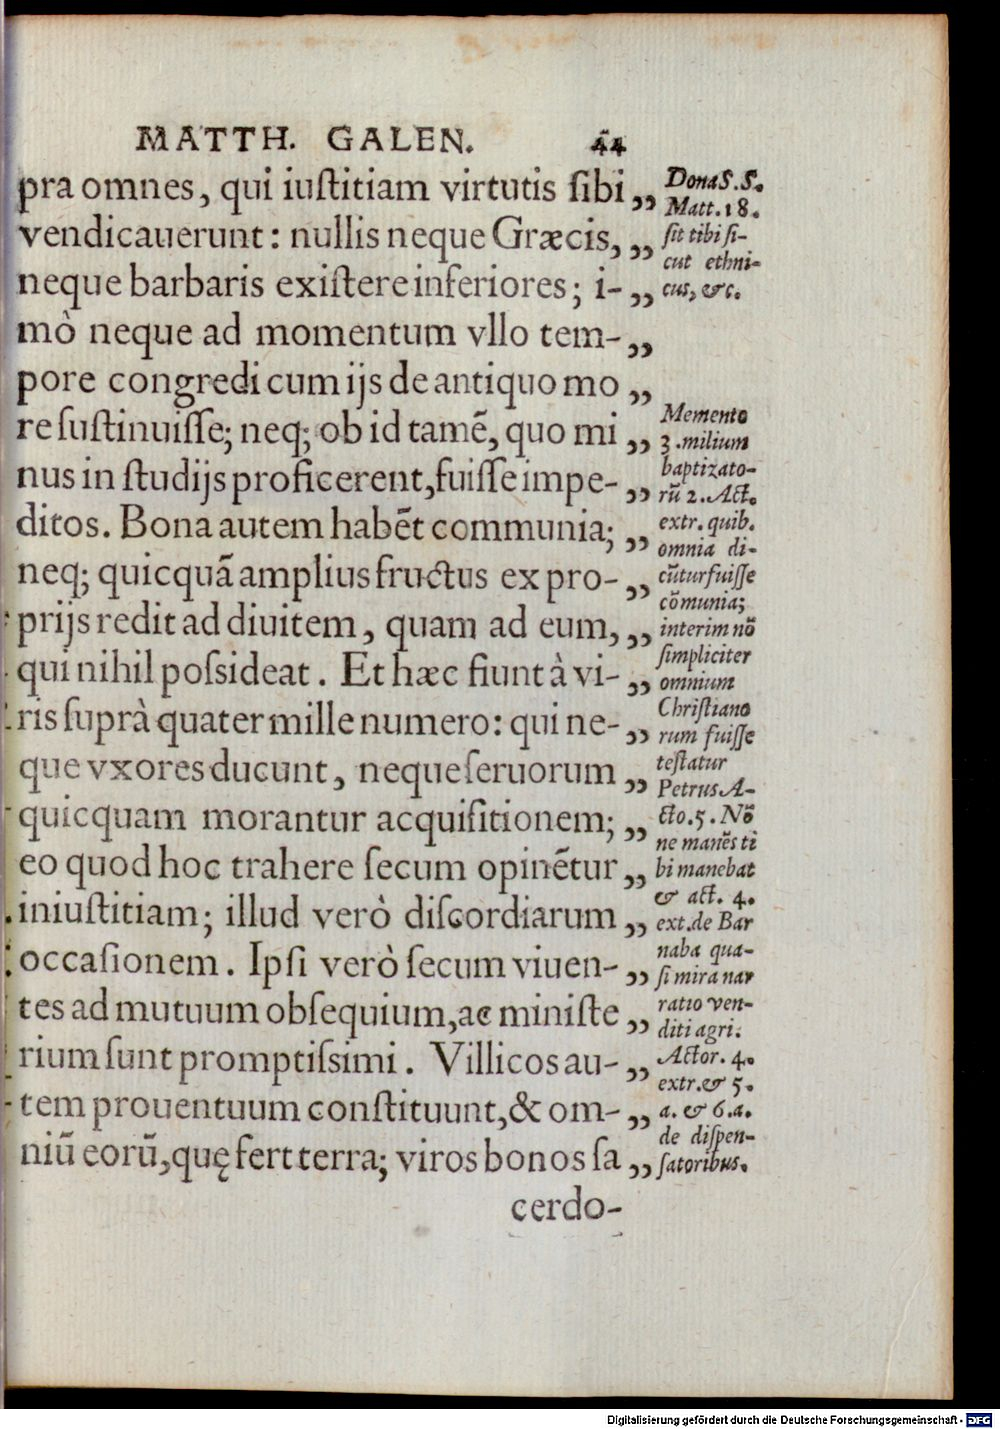 MATTH. GALEN. 44
pra omnes, qui iuſtitiam virtutis ſibi „
vendicauerunt: nullis neque Græcis, „
neque barbaris exiſtere inferiores; i- „
mò neque ad momentum vllo tem- „
pore congredi cum ijs de antiquo mo „
re ſuſtinuiſſe; neq; ob id tamẽ, quo mi „
nus in ſtudijs proficerent, fuiſſe impe- „
ditos. Bona autem habẽt communia; „
neq; quicquã amplius fructus ex pro- „
prijs redit ad diuitem, quam ad eum, „
qui nihil poſsideat. Et hæc fiunt à vi- „
ris ſuprà quater mille numero: qui ne- „
que vxores ducunt, neque ſeruorum „
quicquam morantur acquiſitionem; „
eo quod hoc trahere ſecum opinẽtur „
iniuſtitiam; illud verò diſcordiarum „
occaſionem. Ipſi verò ſecum viuen- „
tes ad mutuum obſequium, ac miniſte „
rium ſunt promptiſsimi. Villicos au- „
tem prouentuum conſtituunt, & om- „
niũ eorũ, quę fert terra; viros bonos ſa „
cerdo-
Dona S.S.
Matt.18.
ſit tibi ſi-
cut ethni-
cus, &c.
Memento
3.milium
baptizato-
rũ 2. Act.
extr. quib.
omnia di-
cũtur fuiſſe
cõmunia;
interim nõ
ſimpliciter
omnium
Chriſtiano
rum fuiſſe
teſtatur
Petrus A-
cto.5. Nõ
ne manẽs ti
bi manebat
& act. 4.
ext.de Bar
naba qua-
ſi mira nar
ratio ven-
diti agri.
Actor. 4.
extr.& 5.
a. & 6.a.
de diſpen-
ſatoribus.
Digitalisierung gefördert durch die Deutsche Forschungsgemeinschaft - DFG